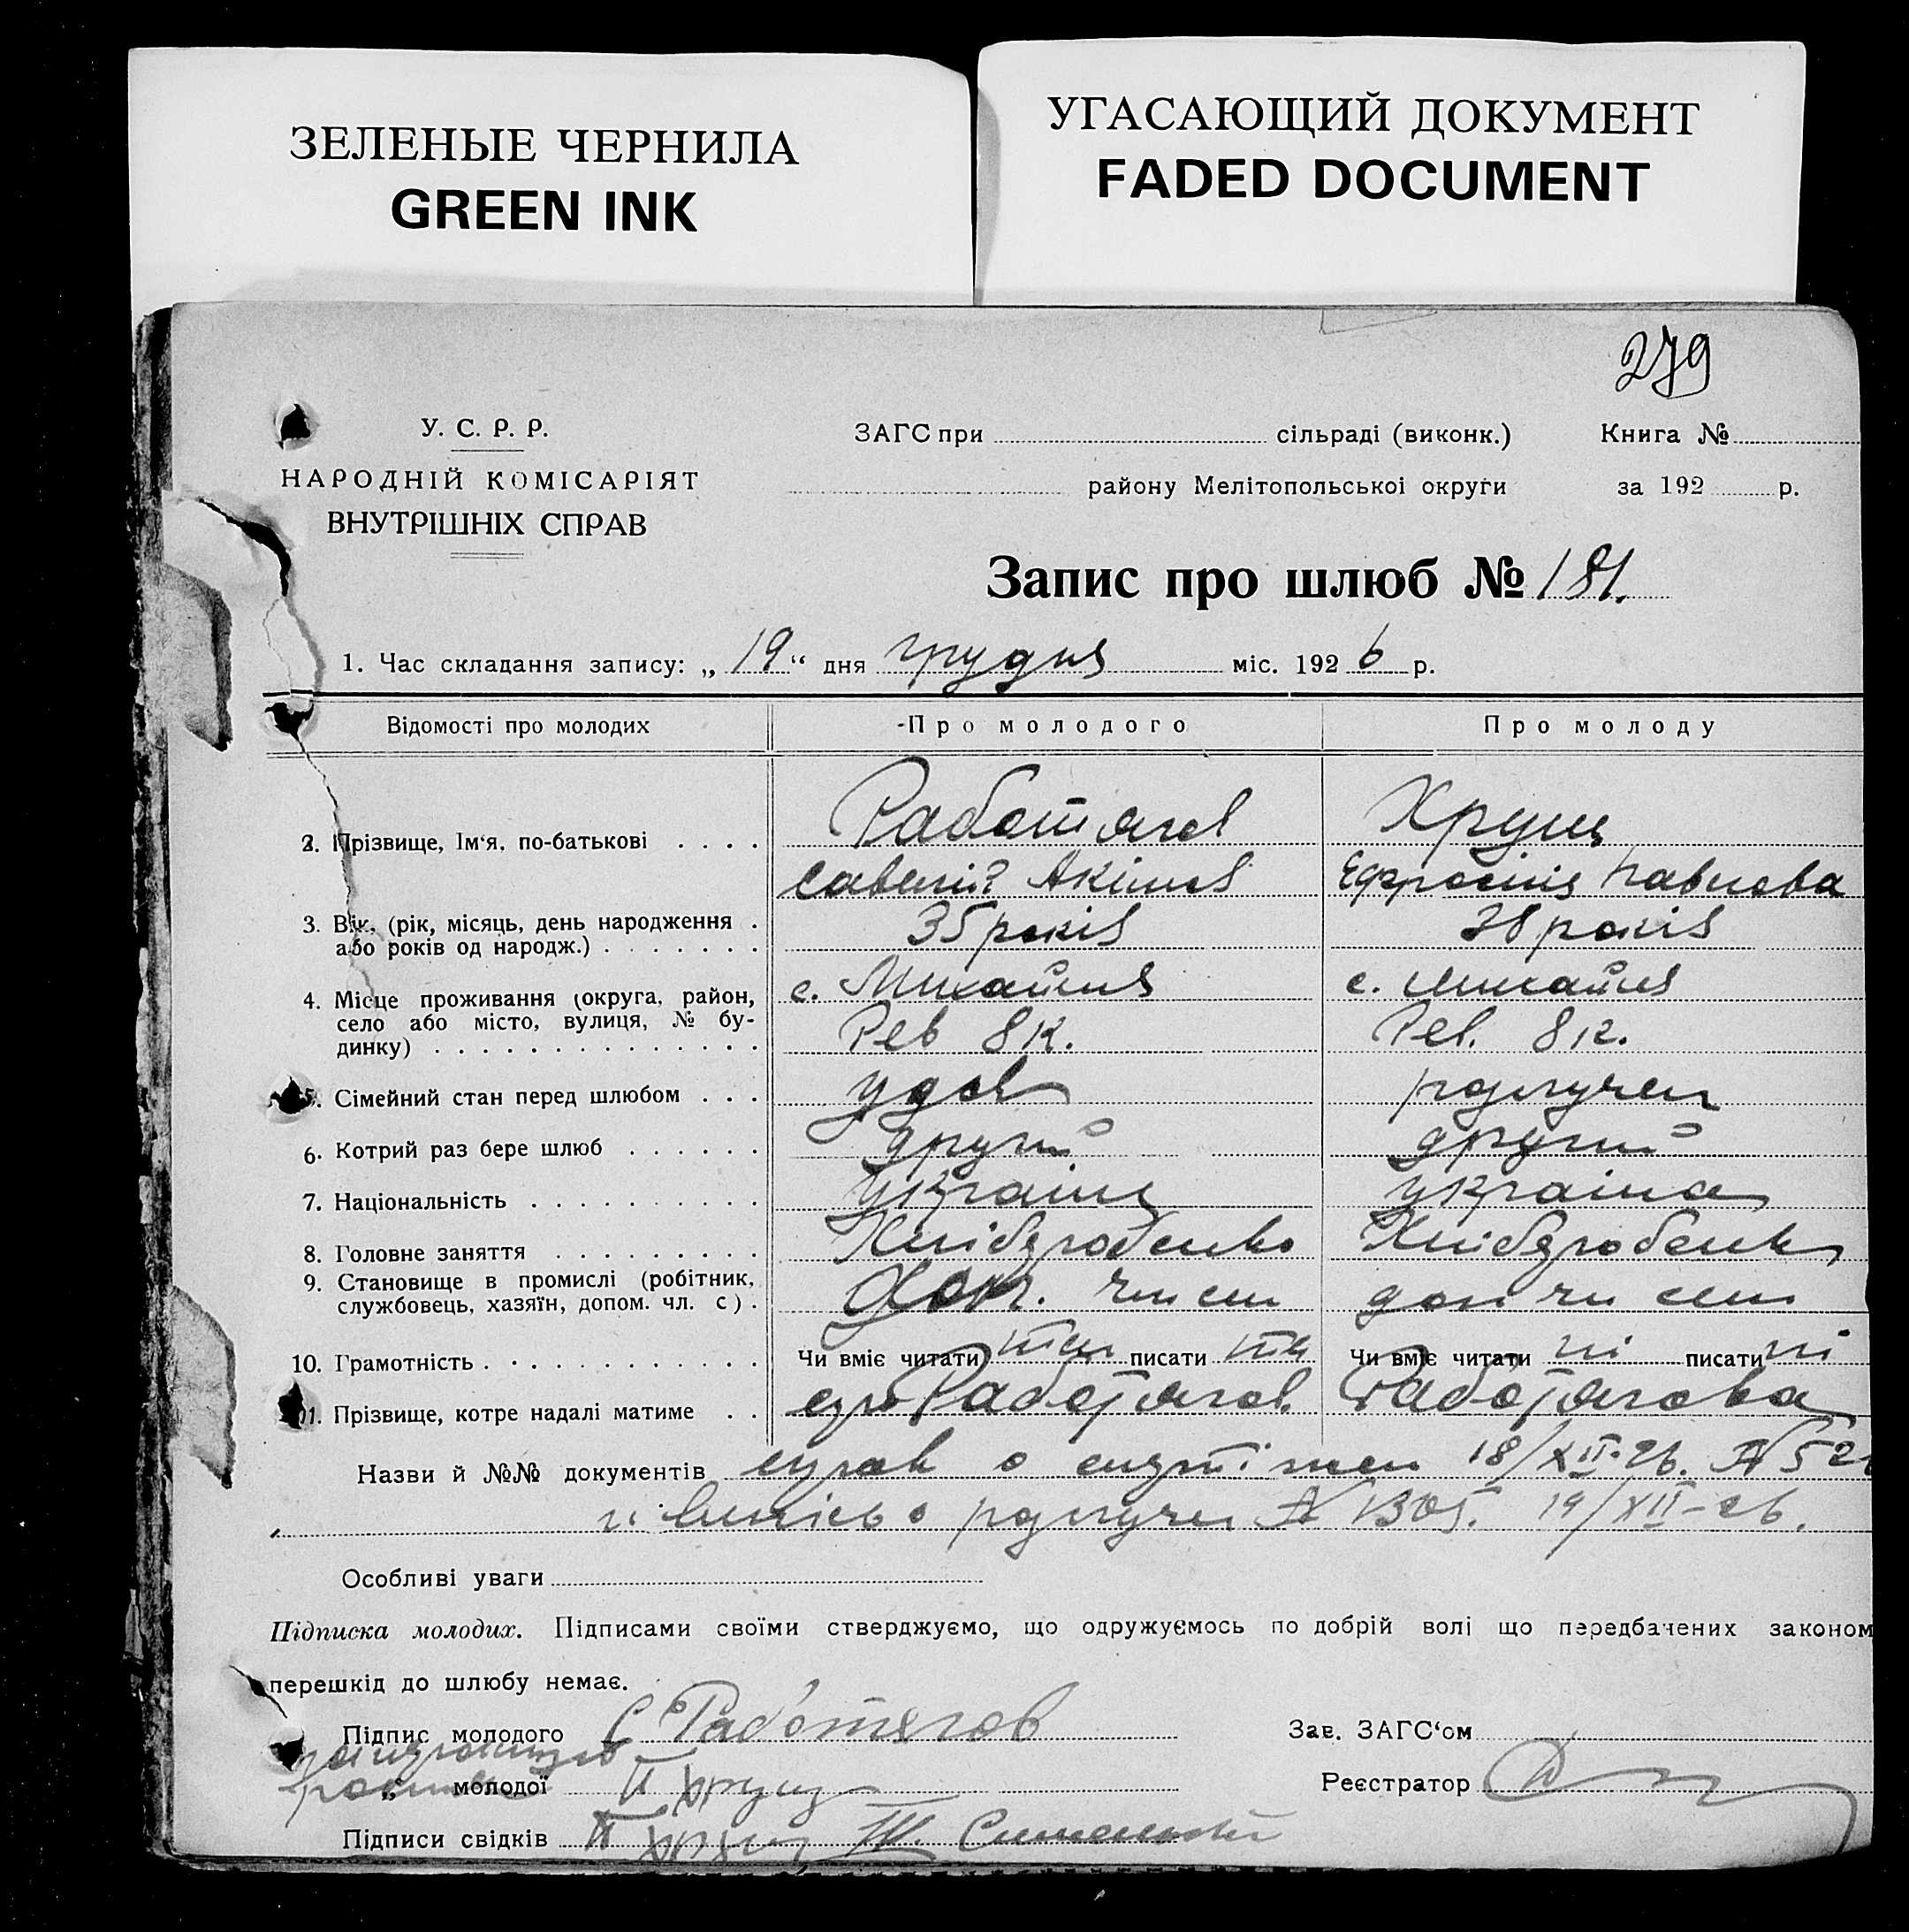 ЗЕЛЕНЫЕ ЧЕРНИЛА
GREEN INK
УГАСАЮЩИЙ ДОКУМЕНТ
FADED DOCUMENT
279
У. С. Р. Р.
НАРОДНІЙ КОМІСАРІЯТ
ВНУТРІШНІХ СПРАВ
ЗАГС при сільраді (виконк.) Книга №
району Мелітопольської округи за 192 р.
Запис про шлюб № 181.
1. Час складання запису: „ 19 “ дня грудня міс. 1926 р.
Відомості про молодих Про молодого Про молоду
Работягов Хрущ
2. Прізвище, Ім‘я, по-батькові
Савелій Акімов Єфросінія Павлова
3. Вік, (рік, місяць, день народження 35 років 38 років
або років од народж.)
4. Місце проживання (округа, район, с. Михайлів с. Михайлів
село або місто, вулиця, № бу- Рев 8 к. Рев. 8 к.
динку)
5. Сімейний стан перед шлюбом удов розлучен
6. Котрий раз бере шлюб другий другий
7. Національність україн україна
8. Головне заняття Хлібороб Хлібороб
9. Становище в промислі (робітник,
службовець, хазяїн, допом. чл. с). член сем доп чл сем
10. Грамотність Чи вміє читати писати Чи вміє читати ні писати ні
11. Прізвище, котре надалі матиме Работягов. Работягова
Назви й №№ документів о 18/XII-26. № 52
о розлучен № 1305. 19/XII-26.
Особливі уваги
Підписка молодих. Підписами своїми стверджуємо, що одружуємось по добрій волі що передбачених законом
перешкід до шлюбу немає.
Підпис молодого С Работягов Зав. ЗАГС‘ом
„ молодої П Хрущ Реєстратор
Підписи свідків П Хрущ